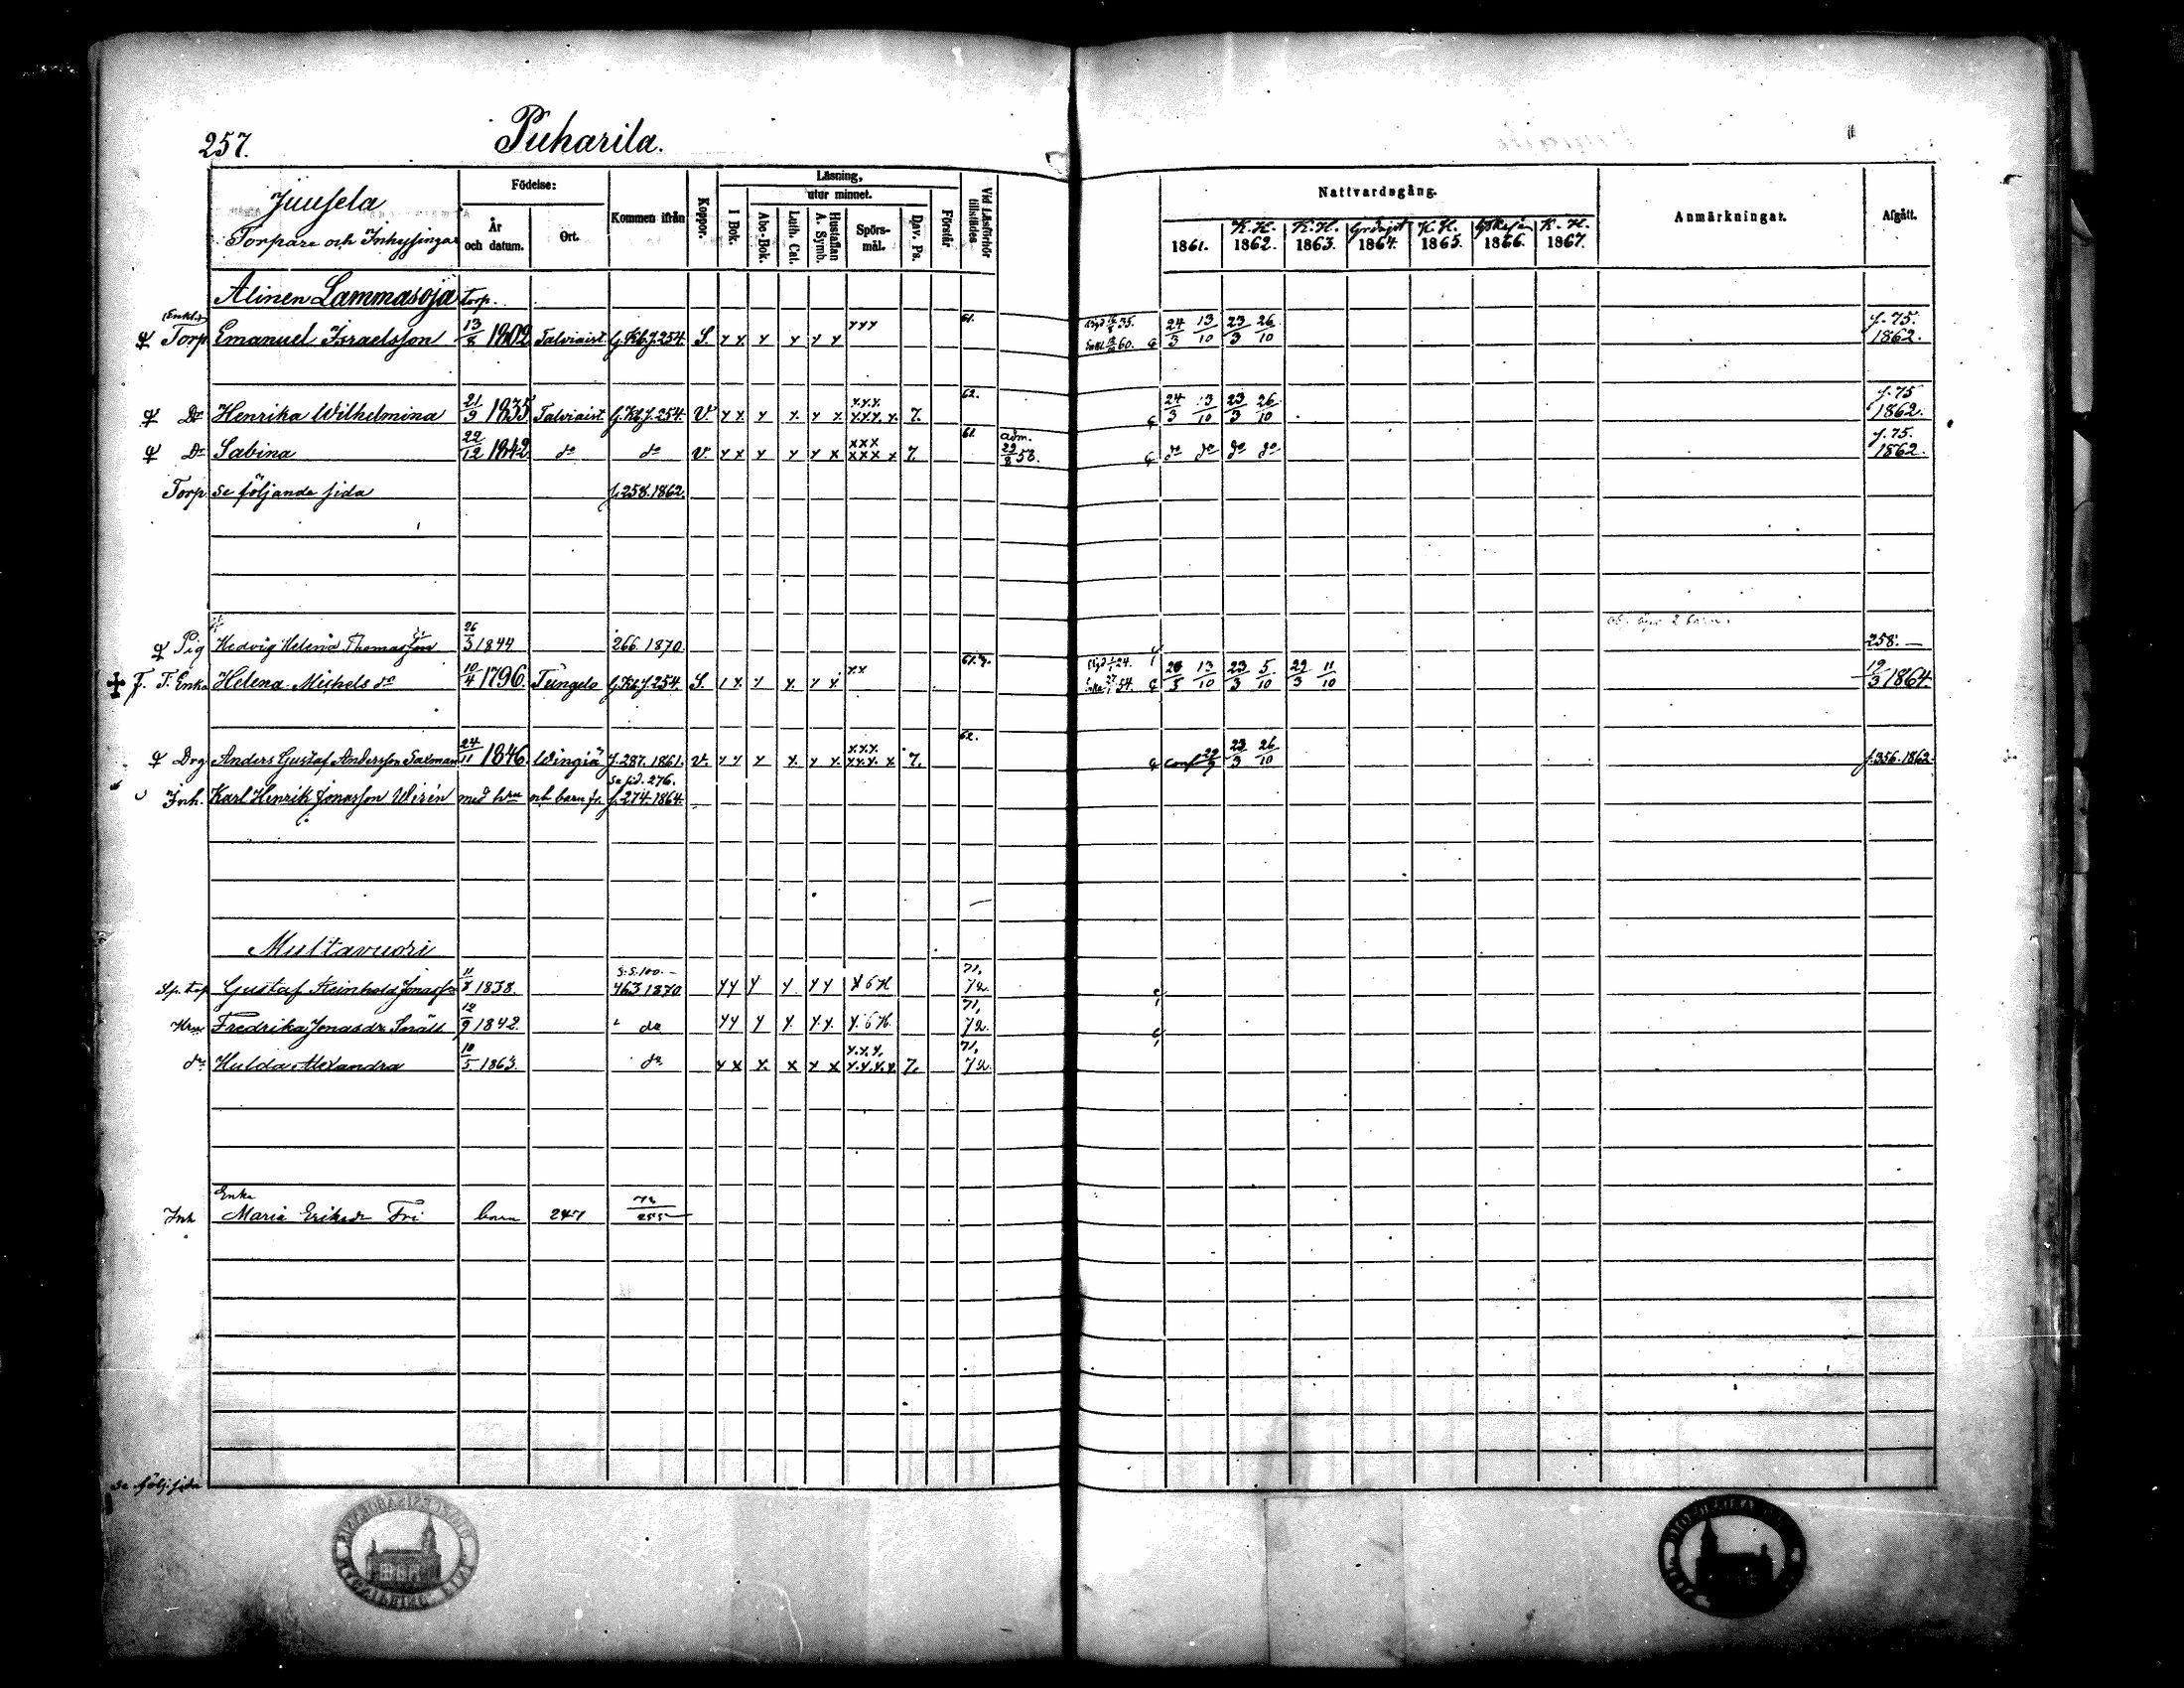 257. Puharila.
Juusela
Torpare och Inhysingar
Födelse:
År och datum.
Ort.
Kommen ifrån
Koppor.
Läsning,
utur minnet.
I Bok.
Abc-Bok.
Luth. Cat.
Hustaflan A. Symb.
Spörs-mål.
Dav. Ps.
Förstår
Vid Läsförhör tillstädes
Nattvardsgång.
1861.
K. H. 1862.
K. H. 1863.
1864.
K. H. 1865.
1866.
K. H. 1867.
Anmärkningar.
Afgått.
Alinen Lammasoja torp.
Torp Emanuel Israelsson 13/8 1802 Talviaist. G.Kb.f.254. S. x x x x x x xxx 61. 24/3 13/10 23/3 26/10 f. 75. 1862.
Dr Henrika Wilhelmina 21/9 1835 Talviaist. G.Kb.f.254. V. x x x x x x x.x.x x.x.x. x. 7. 62. 24/3 13/10 23/3 26/10 f. 75 1862.
Dr Sabina 22/12 1842 do do V. x x x x x xxx xxx x 7. 61. adm. 22/8 58. do do do do f. 75. 1862.
Torp se följande sida f. 258. 1862.
Pig Hedvig Helena 26/3 1844 266. 1870. 258. —
T. Enka Helena Michels do 10/4 1796. G.Kb.f.254. S. x x x x x x xx 13/10 23/3 5/10 22/3 11/10 19/3 1864.
Drg Anders Gustaf Andersson Saxman 24/11 1846. f. 287. 1861. v. x x x x. x x. x.x.x. x.x.x. x 7. 62. conf 23/3 26/10 f. 356. 1862.
se sid. 276.
Inh. Karl Henrik Jonasson Wirén med hru och barn fr. f. 274. 1864.
Multavuori
Gustaf Reinhold Jonasson 11/8 1838. 463 1870 71, 72.
Hru Fredrika Jonasdr Snäll 12/9 1842. do 71, 72.
dr Hulda Alexandra 10/5 1863. do x x x. x x x x.x.x. x.x.x.x 7. 71, 72.
Enka
Inh Maria Eriksdr Fri barn 247
se följ. sida